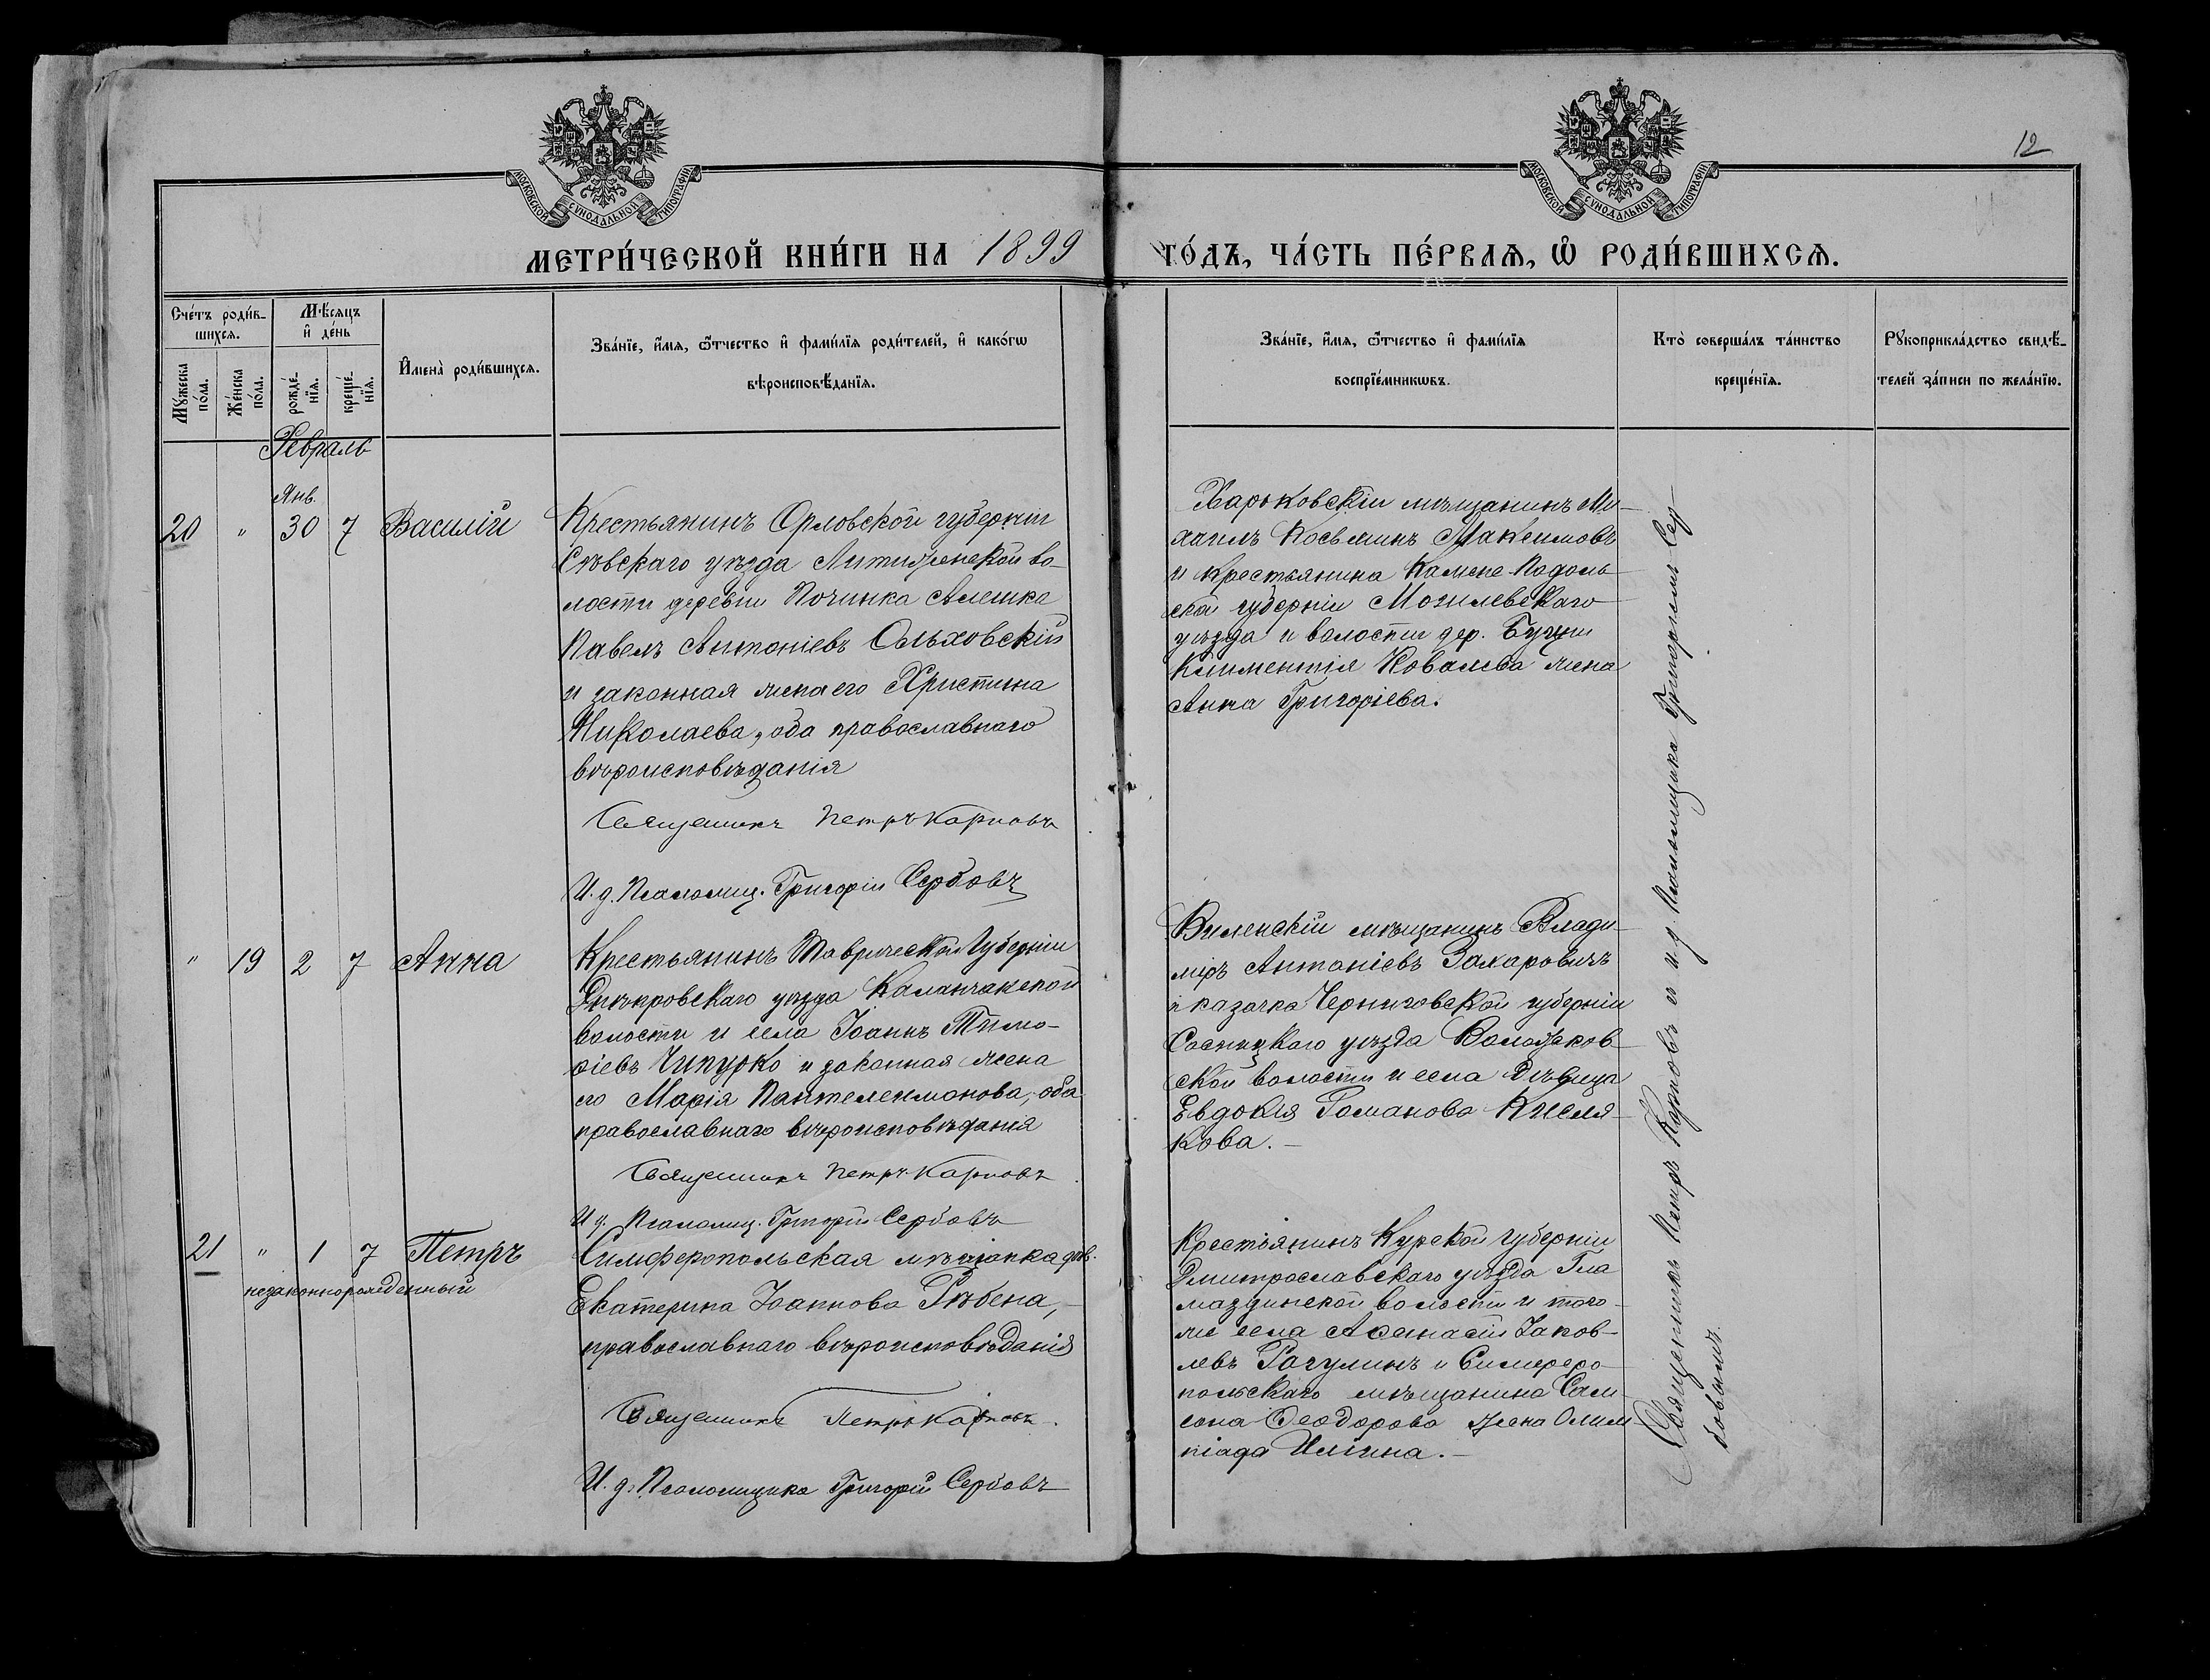 12
МОСКОВСКОЙ СѴНОДАЛЬНОЙ ТИПОГРАФІИ
МОСКОВСКОЙ СѴНОДАЛЬНОЙ ТИПОГРАФІИ
МЕТРИ́ЧЕСКОЙ КНИ́ГИ НА 1899 ГО́ДЪ, ЧА́СТЬ ПЕ́РВАѦ, Ѽ РОДИ́ВШИХСѦ.
Сче́тъ роди́в-
шихсѧ.
Мꙋ́жеска по́ла.
Же́нска по́ла.
Мѣ́сѧцъ
и҆ де́нь
рожде́-
нїѧ.
креще́-
нїѧ.
И҆мена̀ роди́вшихсѧ.
Зва́нїе, и҆́мѧ, ѻ҆́тчество и҆ фами́лїѧ роди́телей, и҆ како́гѡ
вѣроисповѣ́данїѧ.
Зва́нїе, и҆́мѧ, ѻ҆́тчество и҆ фами́лїѧ
воспрїе́мникѡвъ.
Кто̀ соверша́лъ та́инство
креще́нїѧ.
Рꙋкоприкла́дство свидѣ́-
телей за́писи по жела́нїю.
Февраль
Янв.
20 " 30 7 Василій
Крестьянинъ Орловской губерніи
Сѣвскаго уѣзда Литижской во-
лости деревни Починка Алешка
Павелъ Антоніевъ Ольховскій
и законная жена его Христина
Николаева, оба православнаго
вѣроисповѣданія
Священникъ Петръ Карповъ
И. д. Псаломщ. Григорій Сербовъ
Харьковскій мѣщанинъ Ми-
хаилъ Косьминъ Максимовъ
и крестьянина Камене-Подоль-
ской губерніи Могилевскаго
уѣзда и волости дер.
Климентія Ковалева жена
Анна Григоріева.
" 19 2 7 Анна
Крестьянинъ Таврической Губерніи
Днѣпровскаго уѣзда Каланчакской
волости и села Іоаннъ Тимо-
ѳіевъ Чипурко и законная жена
его Марія Пантелеимонова, оба
православнаго вѣроисповѣданія
Священникъ Петръ Карповъ
И д. Псаломщ. Григорій Сербовъ
Виленскій мѣщанинъ Влади-
міръ Антоніевъ Захаровичъ
и казачка Черниговской губерніи
Сосницкаго уѣзда Волосков-
ской волости и села дѣвица
Евдокія Романова Кисля-
кова.
21 " 1 7 Петръ
незаконнорожденный
Симферопольская мѣщанка дѣв.
Екатерина Іоаннова Рѣбена,
православнаго вѣроисповѣданія
Священникъ Петръ Карповъ.
И. д. Псаломщика Григорій Сербовъ
Крестьянинъ Курской губерніи
Дмитрославскаго уѣзда Гла
маздинской волости и того-
же села Аѳанасій Іаков-
левъ Рагулинъ и Симферо-
польскаго мѣщанина Сам-
сона Ѳеодорова жена Олим-
піада Ильина.
Священникъ Петръ Карповъ и и. д. Псаломщика Григоріемъ Сер-
бовымъ.